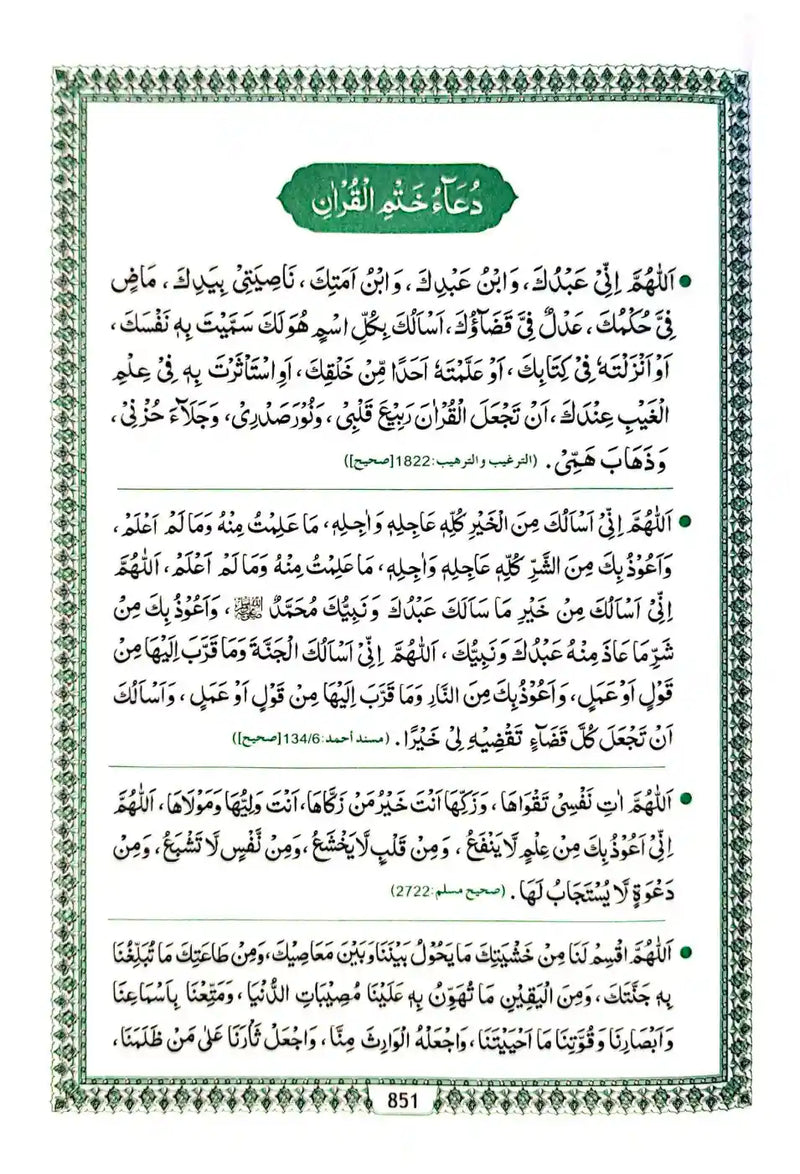 دُعَآءُ خَتْمِ الْقُرْاٰنِ
● اَللّٰهُمَّ اِنِّيْ عَبْدُكَ، وَابْنُ عَبْدِكَ، وَابْنُ اَمَتِكَ، نَاصِيَتِيْ بِيَدِكَ، مَاضٍ
فِيَّ حُكْمُكَ، عَدْلٌ فِيَّ قَضَاؤُكَ، اَسْاَلُكَ بِكُلِّ اسْمٍ هُوَ لَكَ سَمَّيْتَ بِهٖ نَفْسَكَ،
اَوْ اَنْزَلْتَهٗ فِيْ كِتَابِكَ، اَوْ عَلَّمْتَهٗ اَحَدًا مِّنْ خَلْقِكَ، اَوِ اسْتَاْثَرْتَ بِهٖ فِيْ عِلْمِ
الْغَيْبِ عِنْدَكَ، اَنْ تَجْعَلَ الْقُرْاٰنَ رَبِيْعَ قَلْبِيْ، وَنُوْرَ صَدْرِيْ، وَجَلَآءَ حُزْنِيْ،
وَذَهَابَ هَمِّيْ. (الترغيب والترهيب:1822[صحيح])
● اَللّٰهُمَّ اِنِّيْ اَسْاَلُكَ مِنَ الْخَيْرِ كُلِّهٖ عَاجِلِهٖ وَاٰجِلِهٖ، مَا عَلِمْتُ مِنْهُ وَمَا لَمْ اَعْلَمْ،
وَاَعُوْذُ بِكَ مِنَ الشَّرِّ كُلِّهٖ عَاجِلِهٖ وَاٰجِلِهٖ، مَا عَلِمْتُ مِنْهُ وَمَا لَمْ اَعْلَمْ، اَللّٰهُمَّ
اِنِّيْ اَسْاَلُكَ مِنْ خَيْرِ مَا سَاَلَكَ عَبْدُكَ وَنَبِيُّكَ مُحَمَّدٌ ﷺ، وَاَعُوْذُ بِكَ مِنْ
شَرِّ مَا عَاذَ مِنْهُ عَبْدُكَ وَنَبِيُّكَ، اَللّٰهُمَّ اِنِّيْ اَسْاَلُكَ الْجَنَّةَ وَمَا قَرَّبَ اِلَيْهَا مِنْ
قَوْلٍ اَوْ عَمَلٍ، وَاَعُوْذُ بِكَ مِنَ النَّارِ وَمَا قَرَّبَ اِلَيْهَا مِنْ قَوْلٍ اَوْ عَمَلٍ، وَاَسْاَلُكَ
اَنْ تَجْعَلَ كُلَّ قَضَآءٍ تَقْضِيْهِ لِيْ خَيْرًا. (مسند أحمد:134/6[صحيح])
● اَللّٰهُمَّ اٰتِ نَفْسِيْ تَقْوَاهَا، وَزَكِّهَا اَنْتَ خَيْرُ مَنْ زَكَّاهَا، اَنْتَ وَلِيُّهَا وَمَوْلَاهَا، اَللّٰهُمَّ
اِنِّيْ اَعُوْذُ بِكَ مِنْ عِلْمٍ لَّا يَنْفَعُ، وَمِنْ قَلْبٍ لَّا يَخْشَعُ، وَمِنْ نَّفْسٍ لَّا تَشْبَعُ، وَمِنْ
دَعْوَةٍ لَّا يُسْتَجَابُ لَهَا. (صحيح مسلم:2722)
● اَللّٰهُمَّ اقْسِمْ لَنَا مِنْ خَشْيَتِكَ مَا يَحُوْلُ بَيْنَنَا وَبَيْنَ مَعَاصِيْكَ، وَمِنْ طَاعَتِكَ مَا تُبَلِّغُنَا
بِهٖ جَنَّتَكَ، وَمِنَ الْيَقِيْنِ مَا تُهَوِّنُ بِهٖ عَلَيْنَا مُصِيْبَاتِ الدُّنْيَا، وَمَتِّعْنَا بِاَسْمَاعِنَا
وَاَبْصَارِنَا وَقُوَّتِنَا مَا اَحْيَيْتَنَا، وَاجْعَلْهُ الْوَارِثَ مِنَّا، وَاجْعَلْ ثَاْرَنَا عَلٰى مَنْ ظَلَمَنَا،
851